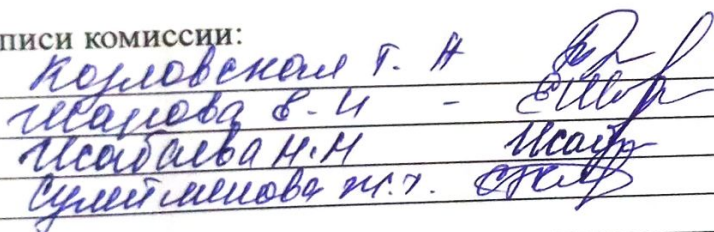 писи комиссии:
Козловская Т. А
Шарова Е. И -
Жабаева Н. Н
Сулейменова Ж. Т.